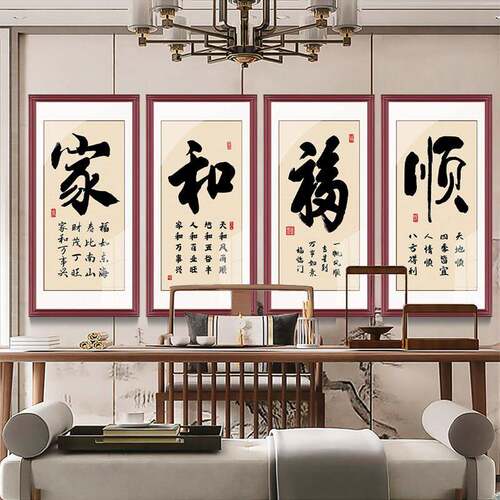 家
福如东海
寿比南山
财茂丁旺
家和万事兴
和
天和风雨顺
地和五谷丰
人和百业旺
家和万事兴
福
一帆风顺
吉星到
万事如意
福临门
顺
天地顺
四季皆宜
人情顺
八方得利